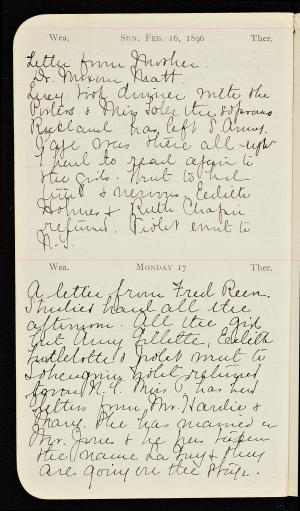 Wea. SUN. FEB. 16, 1896 Ther.
Letter from Mother.
Dr. Mason Matt.
Lucy took dinner with the
Porters & Miss the soprano
Rockland has left S. Army.
were there all night
I had to read again to
the girls. Went to bed
tired & nervous. Eedith
Holmes & Ruth Chapin
returned. Violet went to
N.Y.
Wea. MONDAY 17 Ther.
A letter from Fred Reen.
Studied hard all the
afternoon. All the girls
but Anny Gillette, Eedith
& Violet went to
Lohengrin. Violet returned
from N.Y. Miss P has had
letters from Mr. Hardie &
Mary. She has married a
Mr. Jones & he has taken
the name La & they
are going on the stage.